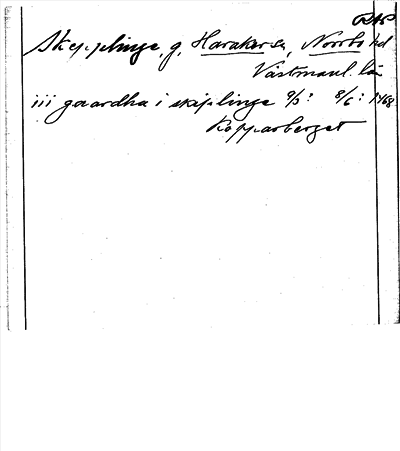 RAP
Skepplinge, g. Harakers, Norrbo hd
Västmanl. län
iii gaardha i skiplinge 9/3? 8/6: 1468
Kopparberget